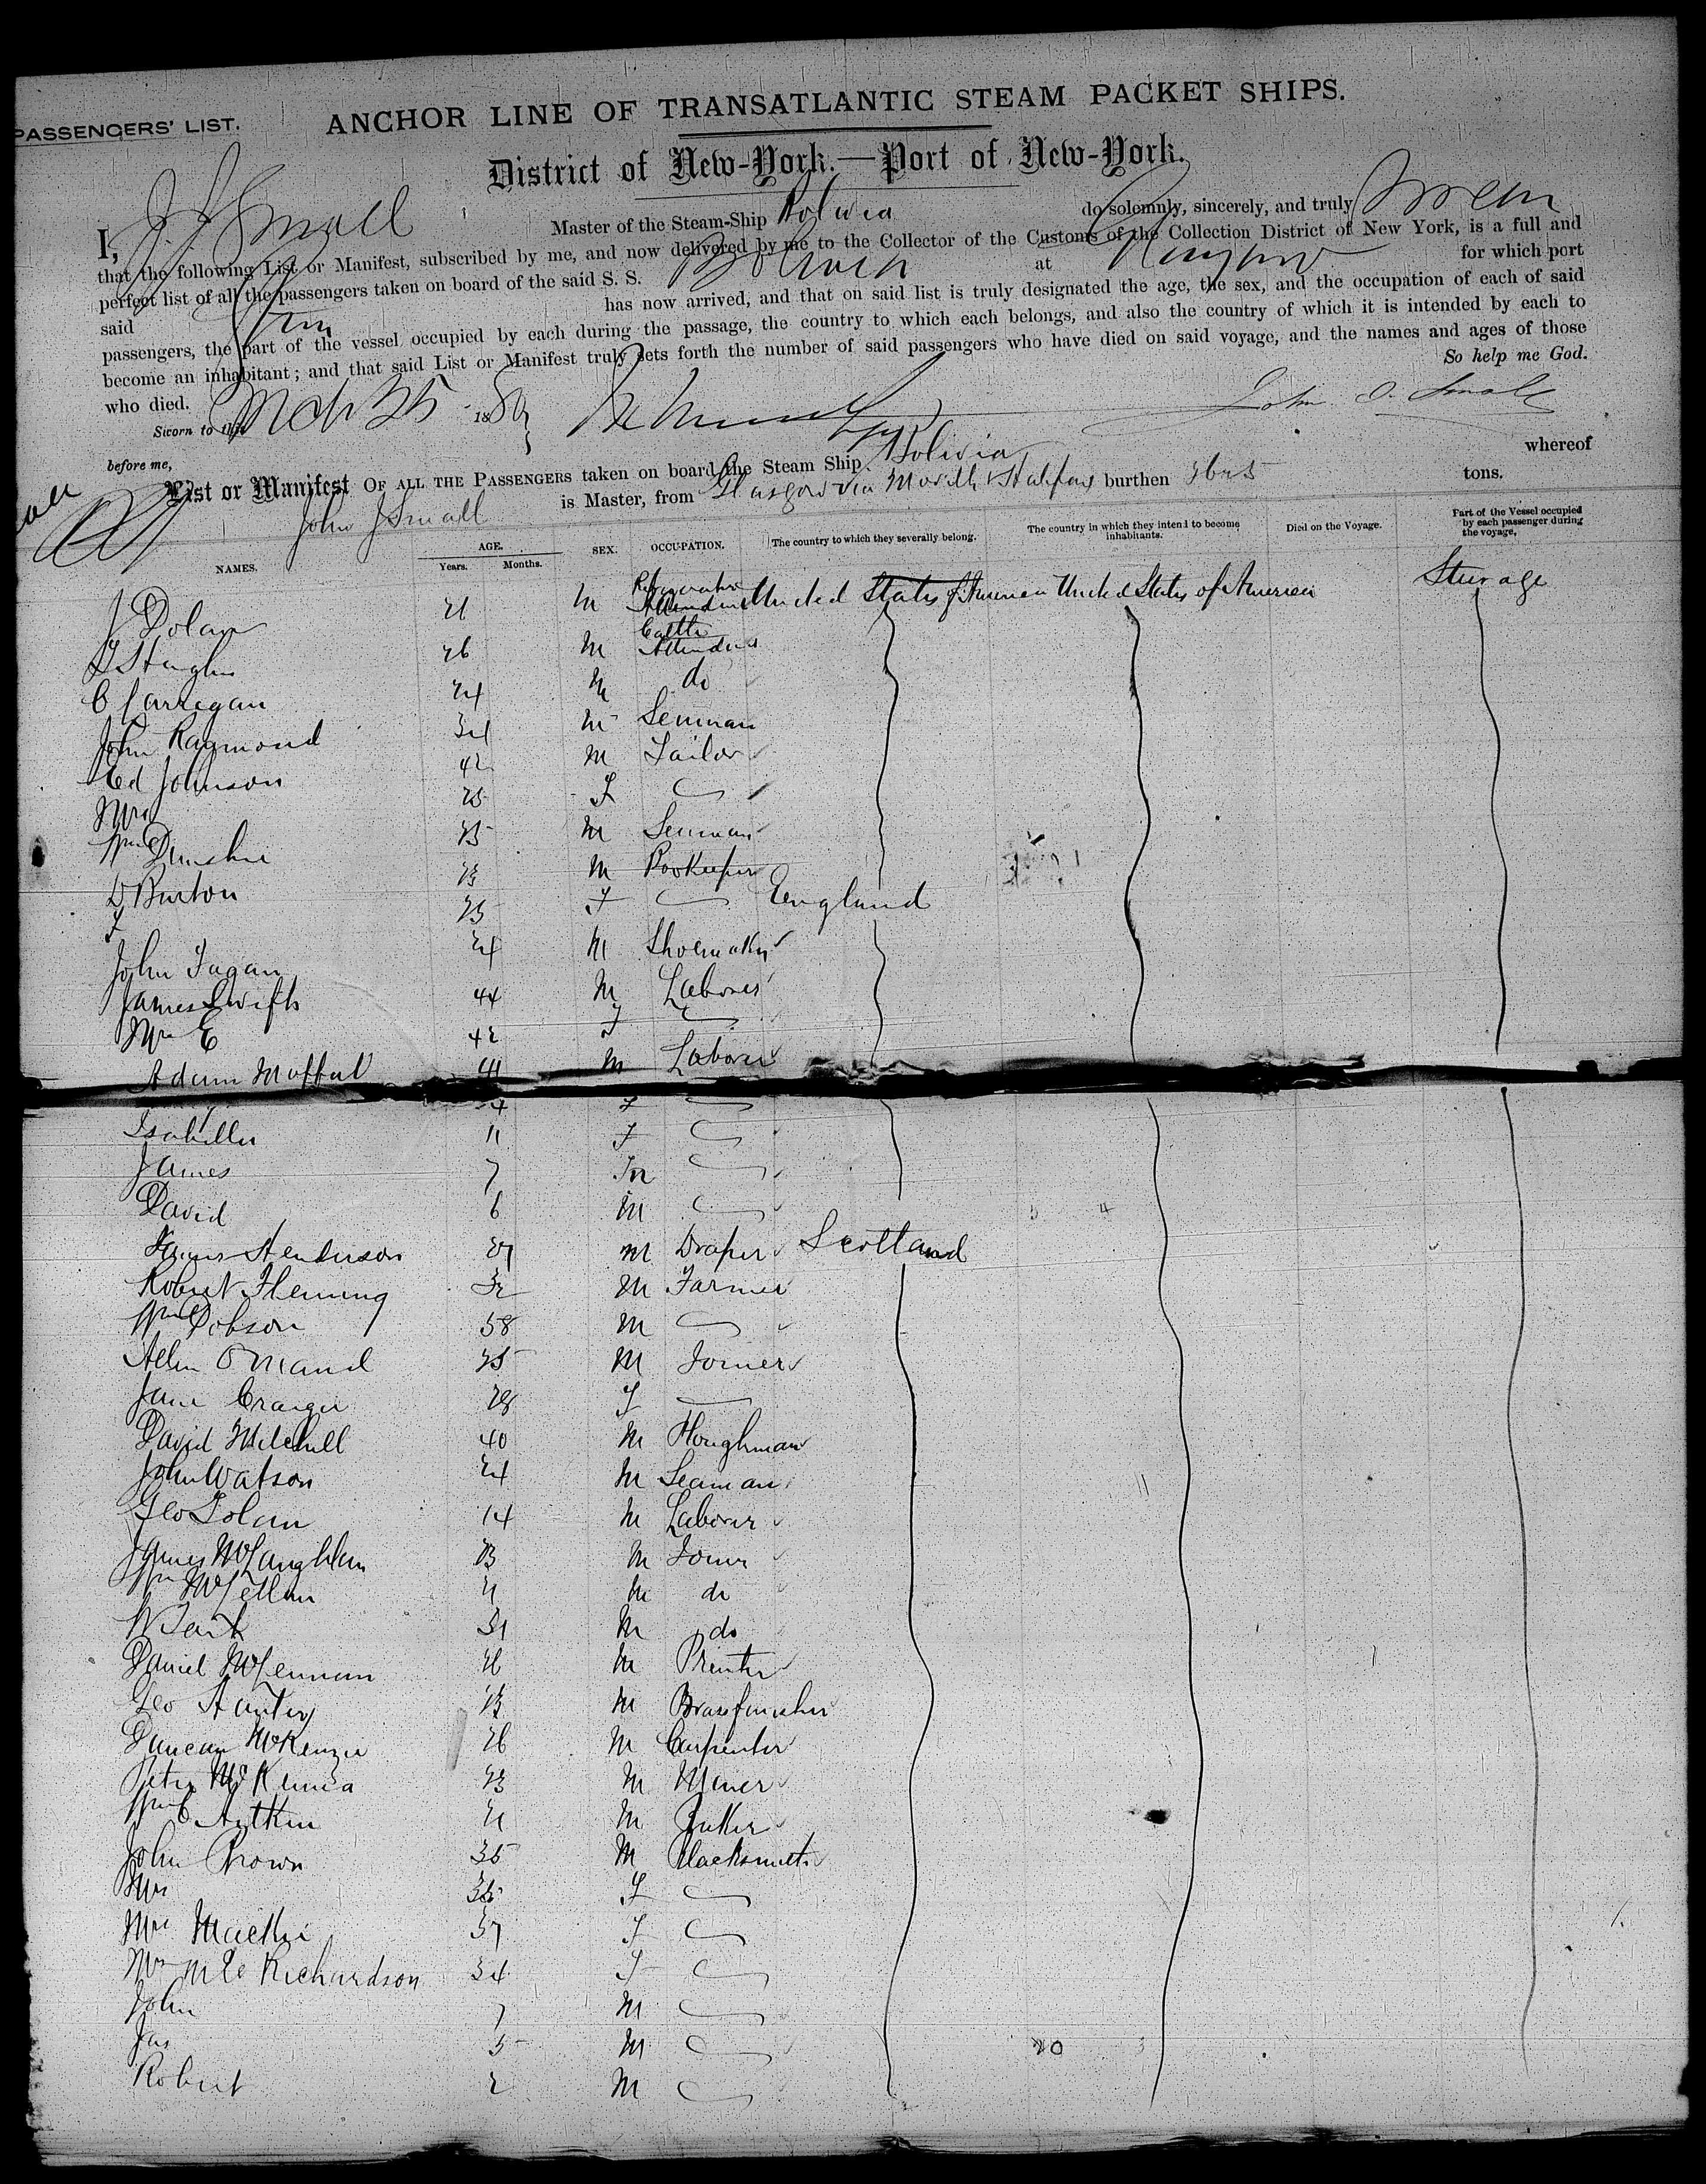 PASSENGERS' LIST.
ANCHOR LINE OF TRANSATLANTIC STEAM PACKET SHIPS.
District of New-York.—Port of New-York.
I, J. J. Small Master of the Steam-Ship Bolivia do solemnly, sincerely, and truly Swear
that the following List or Manifest, subscribed by me, and now delivered by me to the Collector of the Customs of the Collection District of New York, is a full and
perfect list of all the passengers taken on board of the said S. S. Bolivia at Glasgow for which port
said has now arrived, and that on said list is truly designated the age, the sex, and the occupation of each of said
passengers, the part of the vessel occupied by each during the passage, the country to which each belongs, and also the country of which it is intended by each to
become an inhabitant; and that said List or Manifest truly sets forth the number of said passengers who have died on said voyage, and the names and ages of those
who died. So help me God.
Sworn to this March 25 188 John J. Small
before me,
List or Manifest OF ALL THE PASSENGERS taken on board the Steam Ship Bolivia whereof
John J Small is Master, from Glasgow via Moville & Halifax burthen tons.
NAMES. AGE. Years. Months. SEX. OCCUPATION. The country to which they severally belong. The country in which they intend to become inhabitants. Died on the Voyage. Part of the Vessel occupied by each passenger during the voyage.
J Dolan 21 M Attendant United States of America United States of America Steerage
26 M Cattle Attendant
C Carrigan 24 M do
John Raymond M Seaman
Ed Johnson 42 M Tailor
Mrs 25 F
Wm 25 M Seaman
D Burton 23 M Bookkeeper
F 25 F England
John Fagan 24 M Shoemaker
James Swift 44 M Laborer
Mrs E 42 F
Adam Moffat 41 M Laborer
F
Isabella 11 F
James 7 M
David 6 M
James Henderson 27 M Draper Scotland
Robert Fleming 32 M Farmer
Wm Dobson 58 M
Allen Omand 25 M Joiner
Jane 28 F
David Mitchell 40 M Ploughman
John Watson 24 M Seaman
Geo Dolan 14 M Laborer
James McLaughlan 23 M Joiner
Wm McLellan 21 M do
W Tait M do
Daniel McLennan 26 M Printer
Geo Hunter 23 M Brassfinisher
Duncan McKenzie 26 M Carpenter
Peter McKenna 23 M Miner
Wm C Aitken 21 M Baker
John Brown 35 M Blacksmith
Mrs 35 F
Mrs Mackie 37 F
Mrs Richardson 34 F
John 7 M
Jas 5 M 20
Robert 2 M